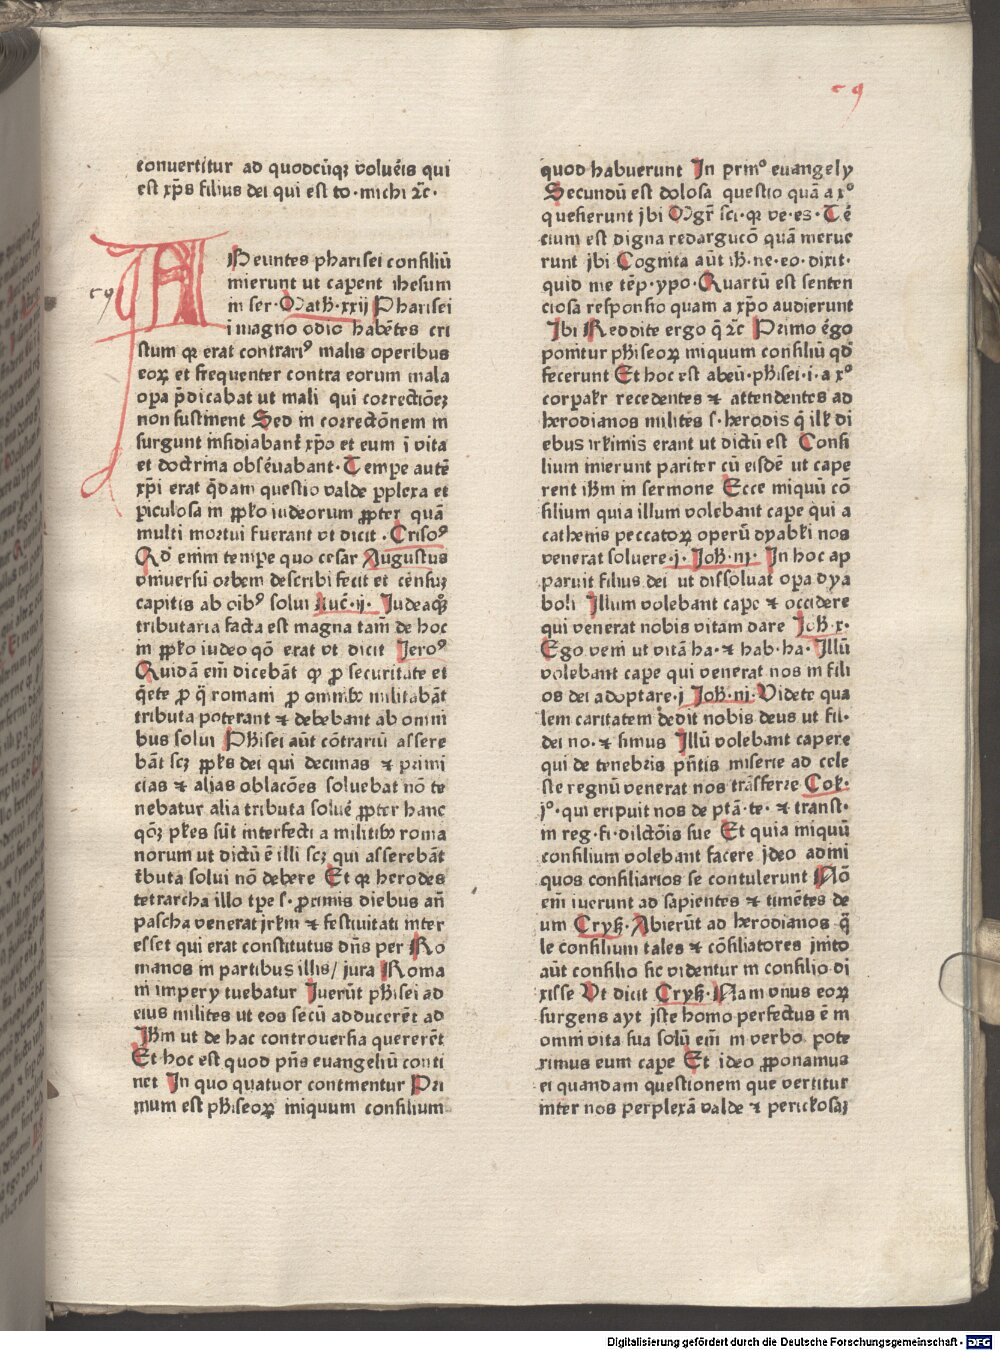 59
conuertitur ad quodcūqꝫ volueris qui
est xp̄s filius dei qui est to·michi ⁊c·
59
ABeuntes pharisei consiliū
inierunt ut caperent ihesum
in ser·Math·xxij Pharisei
i magno odio habētes cri
stum qꝛ erat contrariꝰ malis operibus
eoꝝ et frequenter contra eorum mala
opa p̄dicabat ut mali qui correctiōeꝫ
non sustinent Sed in correctōnem in
surgunt insidiabant xp̄o et eum ī vita
et doctrina obseruabant·Tempe autē
xp̄i erat q̄dam questio valde ꝑplexa et
ꝑiculosa in pplo iudeorum ꝓpter quā
multi mortui fuerant vt dicit·Crisoꝰ
Qd̄ enim tempe quo cesar Augustus
vniuersū orbem describi fecit et censuꝫ
capitis ab oibꝰ solui Luc̄·ij· Iudeaqꝫ
tributaria facta est magna tam̄ de hoc
in pplo iudeo q̄o erat vt dicit Jeroꝰ
Quidā em̄ dicebāt ꝙ ꝓ securitate et
q̄ete ꝓ q̄ romani ꝓ omnibꝰ militabāt
tributa poterant ⁊ debebant ab omni
bus solui Phīsei aūt cōtrariū assere
bāt scꝫ ppls dei qui decimas ⁊ primi
cias ⁊ alias oblacōes soluebat nō te
nebatur alia tributa soluē ꝓpter hanc
qōꝫ ples sūt interfecti a militibꝰ roma
norum ut dictū ē illi scꝫ qui asserebāt
tbuta solui nō debere Et qꝛ herodes
tetrarcha illo tpe s·ꝓximis diebus an̄
pascha venerat jrlm ⁊ festiuitati inter
esset qui erat constitutus dn̄s per Ro
manos in partibus illis/ jura Roma
ni impery tuebatur Iuerūt phīsei ad
eius milites ut eos secū adducerēt ad
Ihm ut de hac controuersia quererēt
Et hoc est quod pn̄s euangeliū conti
net In quo quatuor continentur Pri
mum est phīseoꝝ iniquum consilium
quod habuerunt In primꝰ euangely
Secundū est dolosa questio quā a xꝰ
quesierunt jbi Mgr̄ sci·qꝛ ve·es·Tē
cium est digna redargucō quā merue
runt jbi Cognita aūt ih·ne·eo·dixit·
quid me tēp·ypo·Quartū est senten
ciosa responsio quam a xp̄o audierunt
Ibi Reddite ergo q̄ ⁊c Primo ēgo
ponitur phīseoꝝ iniquum consiliū qd̄
fecerunt Et hoc est abeū·phīsei·i·a xꝰ
corpalr recedentes ⁊ attendentes ad
herodianos milites s·herodis q̄ illꝭ di
ebus irlimis erant ut dictū est Consi
lium inierunt pariter cū eisdē ut cape
rent ihm in sermone Ecce iniquū cō
silium quia illum volebant cape qui a
cathenis peccatoꝝ operū dyabli nos
venerat soluere·j·Joh·iij· In hoc ap
paruit filius dei ut dissoluat opa dya
boli Illum volebant cape ⁊ occidere
qui venerat nobis vitam dare Joh·x·
Ego veni ut vitā ha·⁊ hab·ha·Illū
volebant cape qui venerat nos in fili
os dei adoptare·j Joh·iij·Videte qua
lem caritatem dedit nobis deus ut fil·
dei no·⁊ simus Illū volebant capere
qui de tenebris pn̄tis miserie ad cele
ste regnū venerat nos trāsferre Col·
jꝰ·qui eripuit nos de ptā·te·⁊ transt·
in reg·fi·dilctōis sue Et quia iniquū
consilium volebant facere jdeo ad ini
quos consiliarios se contulerunt Nō
em̄ iuerunt ad sapientes ⁊ timētes de
um Crys·Abierūt ad herodianos q̄
le consilium tales ⁊ cōsiliatores inito
aūt consilio sic videntur in consilio di
xisse Vt dicit Crys·Nam vnus eoꝝ
surgens ayt jste homo perfectus ē in
omni vita sua solū em̄ in verbo pote
rimus eum cape Et ideo ꝓponamus
ei quandam questionem que vertitur
inter nos perplexā valde ⁊ periclosaꝫ
Digitalisierung gefördert durch die Deutsche Forschungsgemeinschaft - DFG